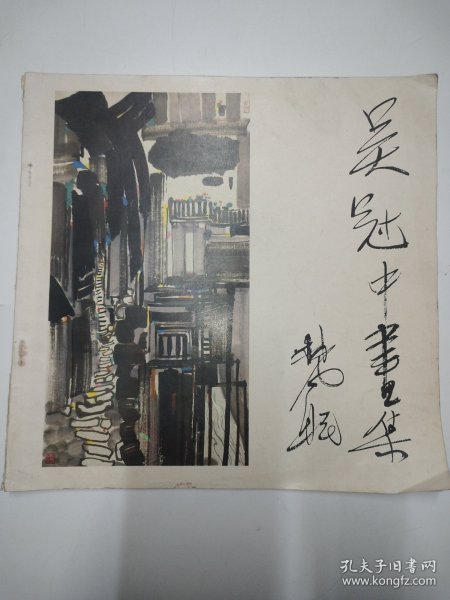 吴冠中画集
林风眠
孔夫子旧书网
www.kongfz.com